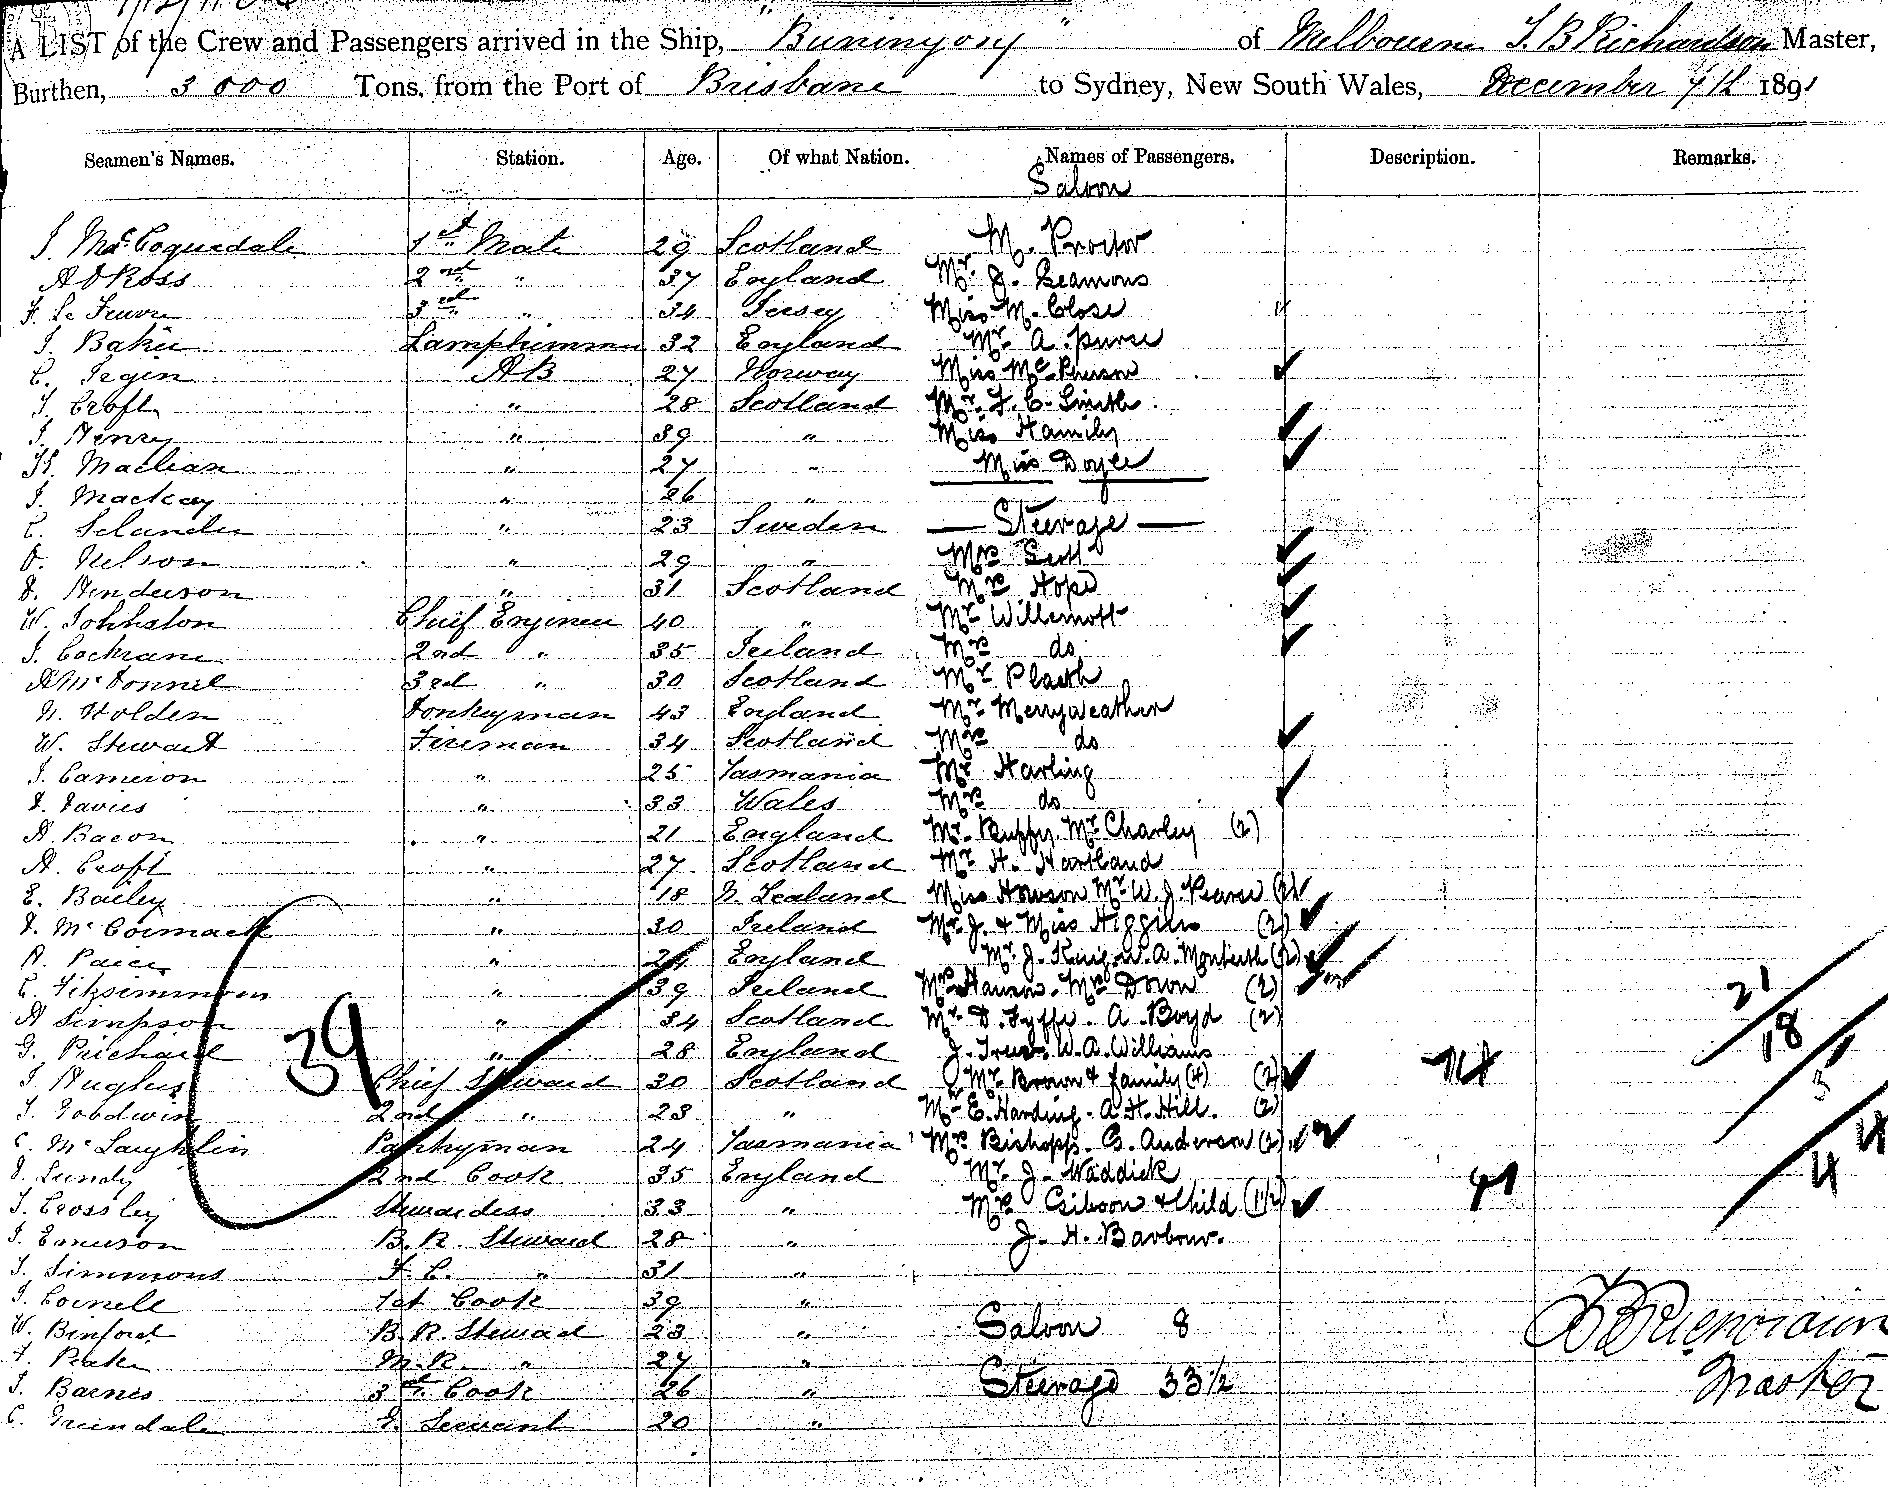 A LIST of the Crew and Passengers arrived in the Ship, "Buninyong" of Melbourne T. B Richardson Master,
Burthen, 3000 Tons, from the Port of Brisbane to Sydney, New South Wales, December 7th 1891
Seamen's Names. Station. Age. Of what Nation. Names of Passengers. Description. Remarks.
Saloon
J. McCoquedale 1st Mate 29 Scotland M. Proctor
A D Ross 2nd " 37 England Mr. J. Seamons
F. Le Feuvre 3rd " 34 Jersey Miss M. Close
J. Baker Lamptrimmer 32 England Mr. A. Purse
C. Tegin AB 27 Norway Miss McPherson
J. Croft " 28 Scotland Mr. F. C. Smith
J. Henry " 39 " Miss Hamily
H. Maclean " 27 " Miss Doyle
J. Mackay " 26 "
C. Selander " 23 Sweden Steerage
O. Nelson " 29 " Mrs Scott
D. Henderson " 31 Scotland Mrs Hope
W. Johnston Chief Engineer 40 " Mr Willemott
J. Cochrane 2nd " 35 Ireland Mrs do
A McDonnel 3rd " 30 Scotland Mr Plaeth
N. Holden Donkeyman 43 England Mr Merryweather
W. Stewart Fireman 34 Scotland Mrs do
J. Cameron " 25 Tasmania Mr Harling
D. Davies " 33 Wales Mrs do
A Bacon " 21 England Mr. Ruppy. Mr Charley (2)
A. Croft " 27 Scotland Mr H. Hartland
E. Bailey " 18 N. Zealand Miss Howson Mr W. J. Pearse (2)
D. McCormack " 30 Ireland Mr. J. & Miss Higgins (2)
" England Mr. J. King. W. A. Monteith (2)
C. Fitzsimmons " 39 Ireland Mrs Hanson. Mrs Down (2)
A Simpson " 34 Scotland Mr. D. Fyffe. A. Boyd (2) 21
G. Prichard " 28 England W. A. Williams 18
J. Hughes Chief Steward 30 Scotland Mr. Brown & family (4) (2)
39
J. Goodwin 2nd " 23 " Mr E. Harding. A. H. Hill. (2)
C. McLaughlin Pantryman 24 Tasmania Mrs Bishopp. G. Anderson (2)
D. Lundy 2nd Cook 35 England Mr. J. Waddick 4
J. Crossley Stewardess 33 " Mrs Gibson & Child (1½)
J. Emerson B. R. Steward 28 " J. H. Barbour.
J. Simmons F. C. " 31 "
J. Cornell 1st Cook 39 "
W. Binford B. R. Steward 23 " Saloon 8
M. R. " 27 "
J. Barnes 3rd Cook 26 " Steerage 33½
Master
C. Grendale G. Servant 20 "